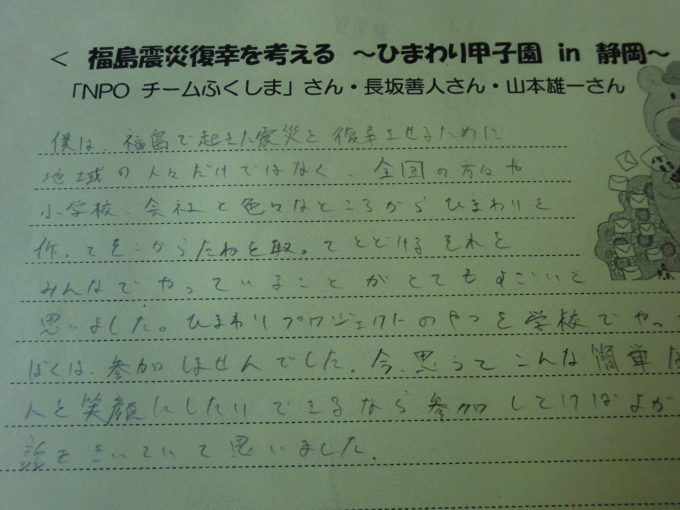 < 福島震災復幸を考える ～ひまわり甲子園 in 静岡～
「NPO チームふくしま」さん・長坂善人さん・山本雄一さん
僕は、福島で起きた震災を復幸させるために
地域の人々だけではなく、全国の方々や
小学校、会社と色々なところからひまわりを
作ってそこからたねを取ってとどけるそれを
みんなでやっていることがとてもすごいと
思いました。ひまわりプロジェクトのやつを学校でやっ
ぼくは、参加しませんでした。今、思うてこんな簡単
人を笑顔にしたりできるなら参加しとけばよか
話をきいていて思いました。